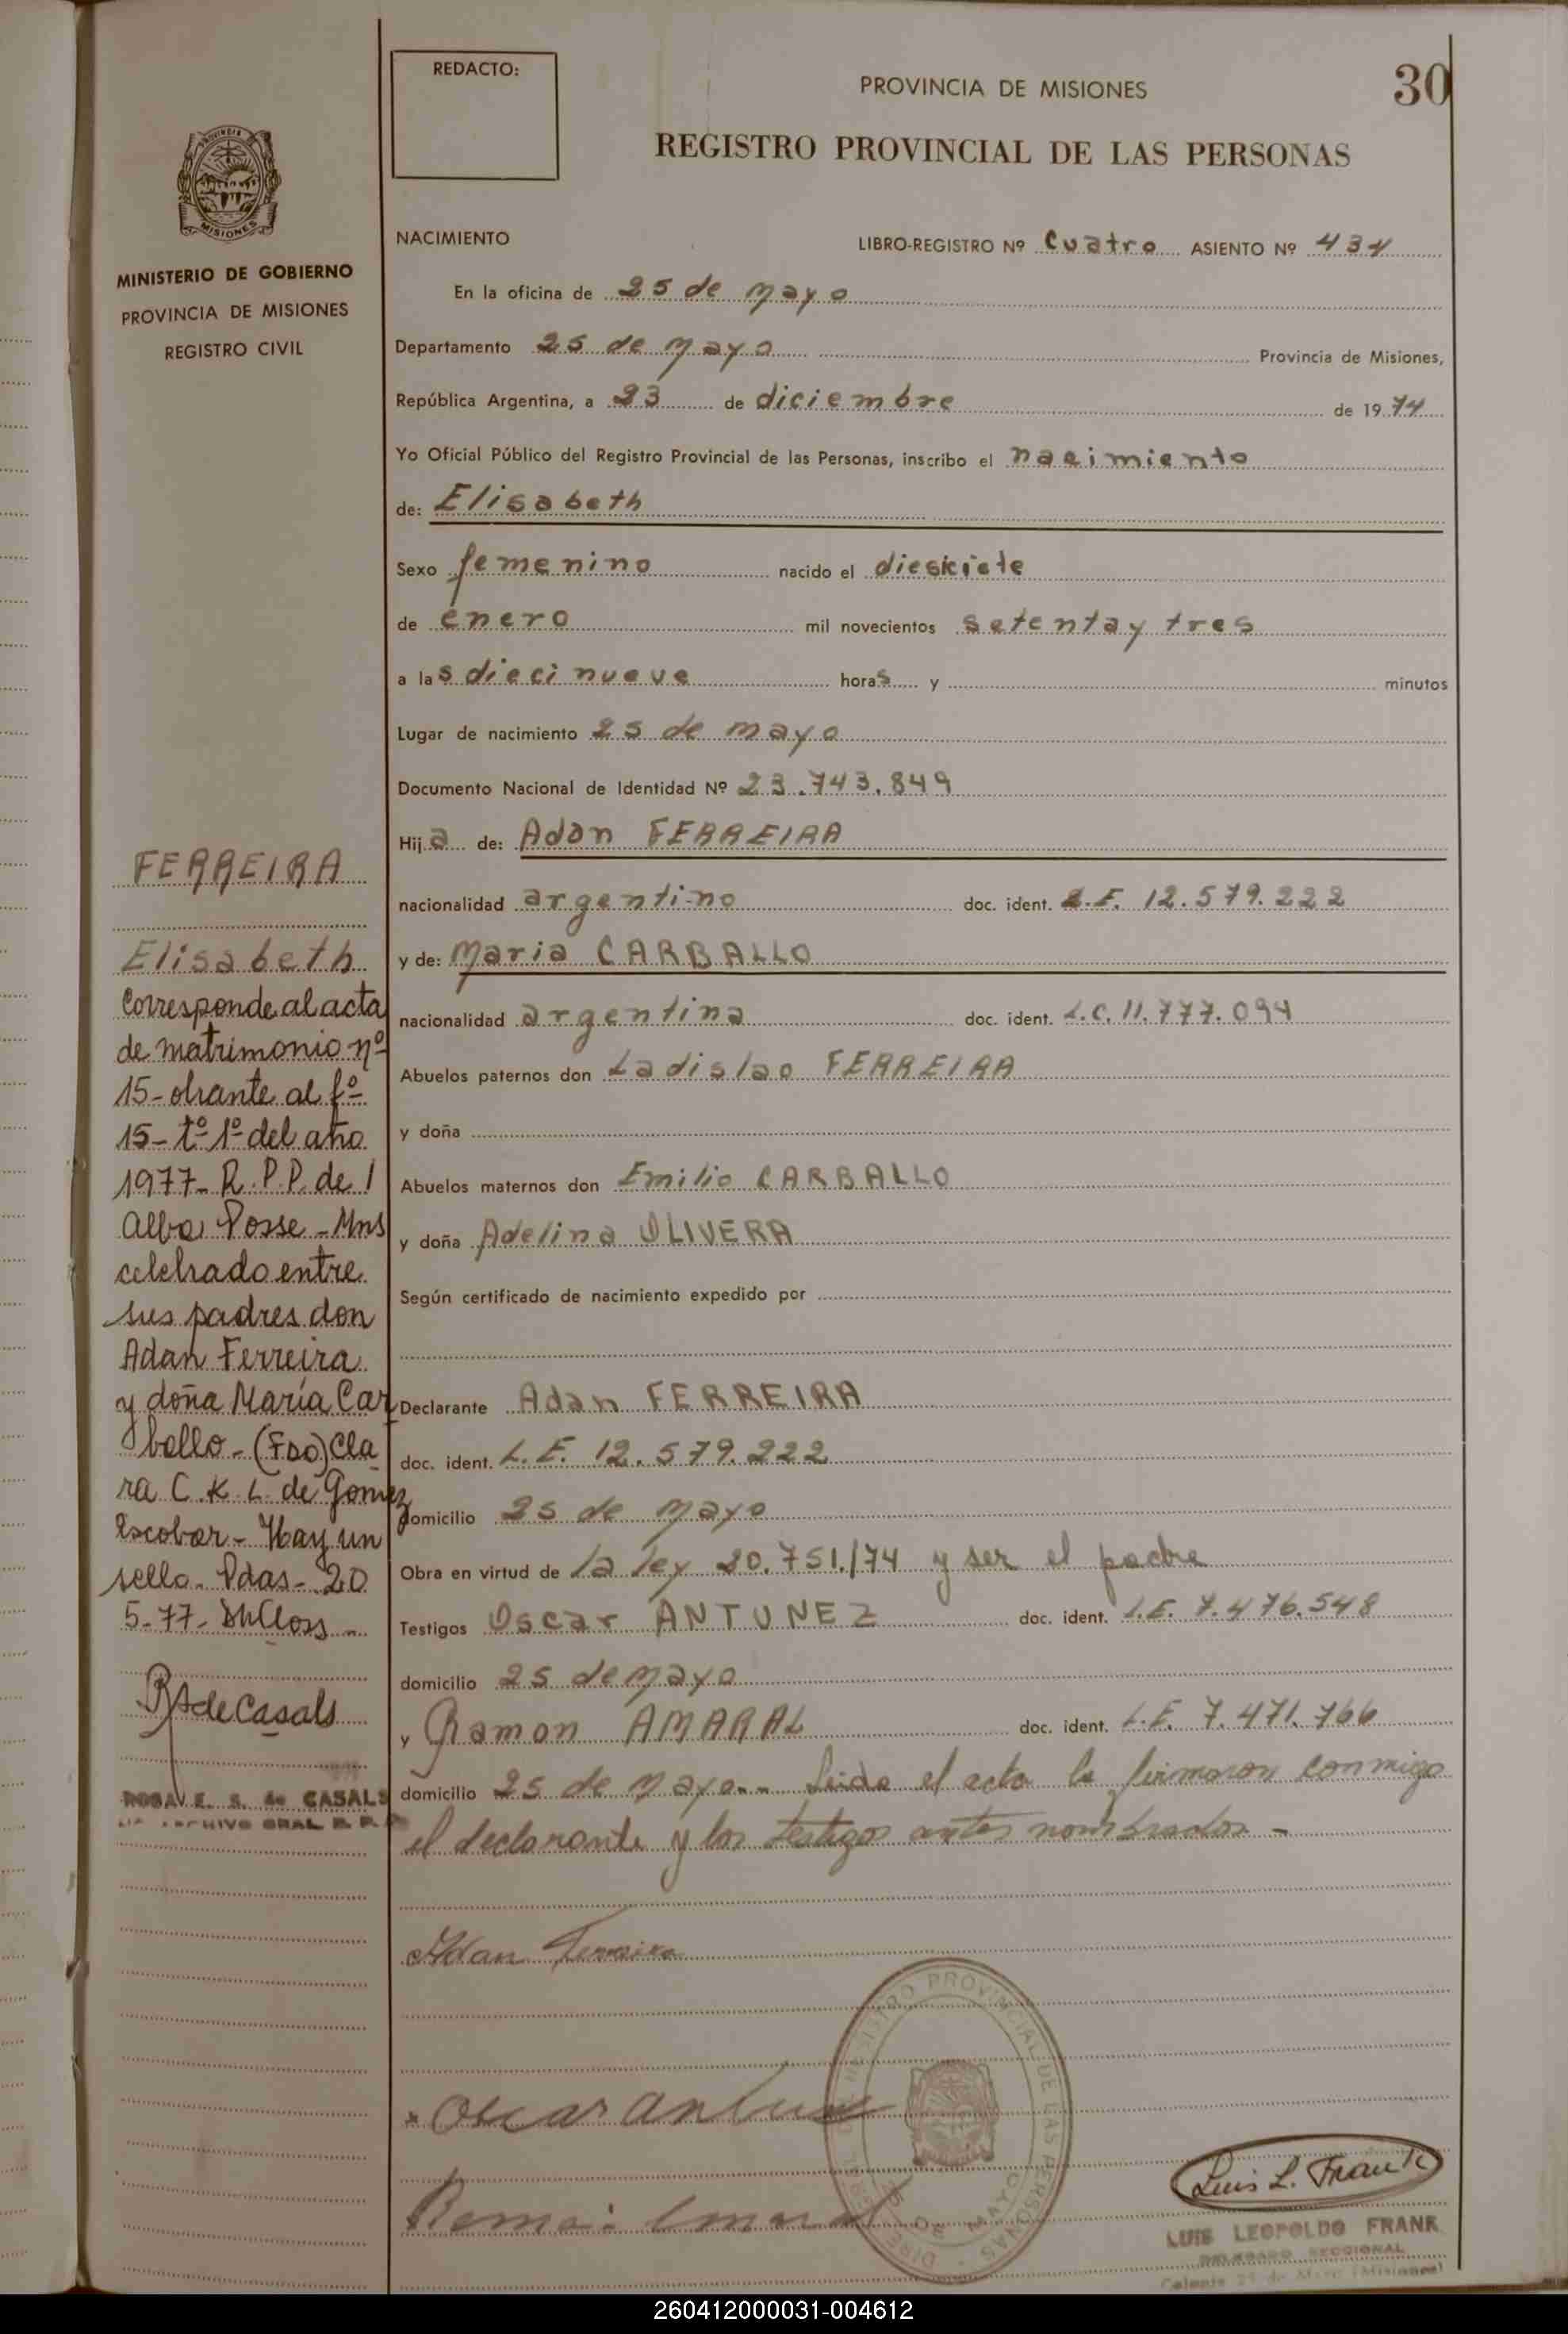 REDACTO:
PROVINCIA DE MISIONES
30
REGISTRO PROVINCIAL DE LAS PERSONAS
MISIONES
MINISTERIO DE GOBIERNO
PROVINCIA DE MISIONES
REGISTRO CIVIL
NACIMIENTO
LIBRO-REGISTRO Nº Cuatro ASIENTO Nº 434
En la oficina de 25 de mayo
Departamento 25 de mayo Provincia de Misiones,
República Argentina, a 23 de diciembre de 1974
Yo Oficial Público del Registro Provincial de las Personas, inscribo el nacimiento
de: Elisabeth
Sexo femenino nacido el diesiciete
de enero mil novecientos setenta y tres
a las dieci nueve horas y minutos
Lugar de nacimiento 25 de mayo
Documento Nacional de Identidad Nº 23.743.849
Hija de: Adan FERREIRA
nacionalidad argentino doc. ident. L.E. 12.579.222
y de: Maria CARBALLO
nacionalidad argentina doc. ident. L.C. 11.777.094
Abuelos paternos don Ladislao FERREIRA
y doña
Abuelos maternos don Emilio CARBALLO
y doña Adelina OLIVERA
Según certificado de nacimiento expedido por
Declarante Adan FERREIRA
doc. ident. L.E. 12.579.222
domicilio 25 de mayo
Obra en virtud de la ley 20.751./74 y ser el padre
Testigos Oscar ANTUNEZ doc. ident. L.E. 7.476.548
domicilio 25 de mayo
y Ramon AMARAL doc. ident. L.E. 7.471.766
domicilio 25 de mayo.- Leida el acta la firmaron conmigo
el declarante y los testigos antes nombrados.-
FERREIRA
Elisabeth
Corresponde al acta
de matrimonio nº
15- obrante al fº
15- tº 1º del año
1977- R.P.P. de
Alba Posse - Mns
celebrado entre
sus padres don
Adan Ferreira
y doña María Car
ballo - (Fdo) Cla
ra C. K. L. de Gomez
Escobar - Hay un
sello. Pdas- 20
5-77-
RSdeCasals
ROSA E. S. de CASALS
ARCHIVO GRAL R. P.
Adan Ferreira
Oscar Antunez
Ramon Amaral
REGISTRO PROVINCIAL DE LAS PERSONAS
25 DE MAYO
Luis L. Frank
LUIS LEOPOLDO FRANK
DELEGADO SECCIONAL
Colonia 25 de Mayo (Misiones)
260412000031-004612